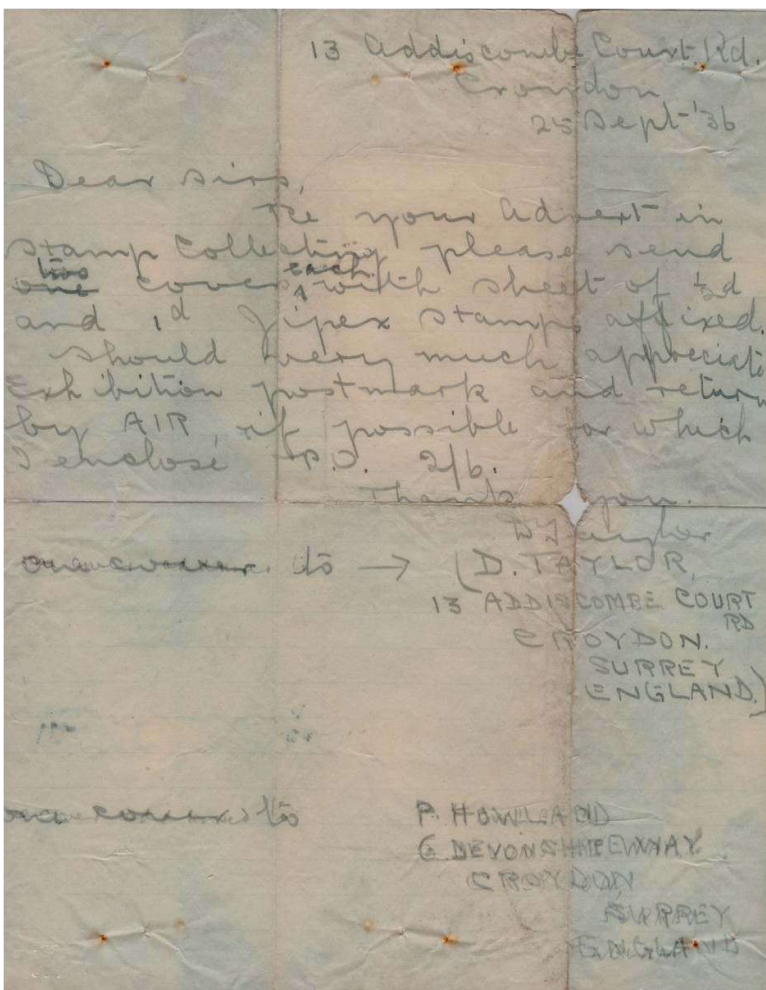 13 Addiscombe Court Rd.
Croydon
25 Sept '36
Dear Sirs,
Re your Advert in
Stamp Collecting please send
two
one covers each with sheet of ½d
and 1d Jipex stamps affixed.
Should very much appreciate
Exhibition postmark and return
by AIR, if possible for which
I enclose P.O. 2/6.
Thank you.
D Taylor
one cover to → (D. TAYLOR,
13 ADDISCOMBE COURT
RD
CROYDON.
SURREY
ENGLAND.)
one cover to P. HOWLAND
6 DEVONSHIRE WAY
CROYDON
SURREY
ENGLAND